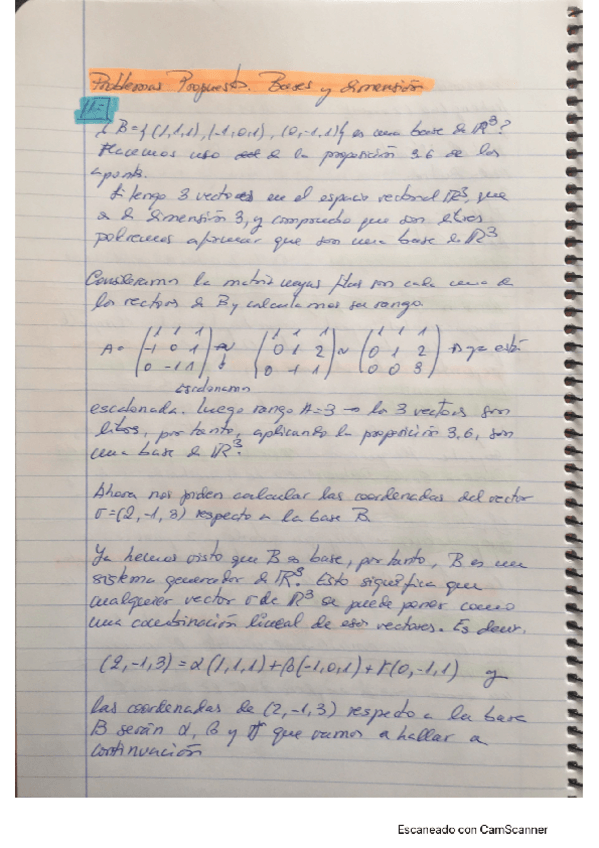 Problemas Propuestos. Bases y dimensión
11-
¿B={(1,1,1),(-1,0,1),(0,-1,1)} es una base de R³?
Hacemos uso de la proposición 3.6 de los
apuntes.
Si tengo 3 vectores en el espacio vectorial R³, que
es de dimensión 3, y compruebo que son libres
podremos afirmar que son una base de R³
Consideramos la matriz cuyas filas son cada uno de
los vectores de B y calculamos su rango.
A= (1 1 1 / -1 0 1 / 0 -1 1) ~ (1 1 1 / 0 1 2 / 0 -1 1) ~ (1 1 1 / 0 1 2 / 0 0 3) → ya está
escalonamos
escalonada. Luego rango A=3 → los 3 vectores son
libres, por tanto, aplicando la proposición 3.6, son
una base de R³.
Ahora nos piden calcular las coordenadas del vector
σ=(2,-1,3) respecto a la base B.
Ya hemos visto que B es base, por tanto, B es un
sistema generador de R³. Esto significa que
cualquier vector σ de R³ se puede poner como
una combinación lineal de esos vectores. Es decir.
(2,-1,3) = α(1,1,1)+β(-1,0,1)+γ(0,-1,1) y
las coordenadas de (2,-1,3) respecto a la base
B serán α, β y γ que vamos a hallar a
continuación
Escaneado con CamScanner